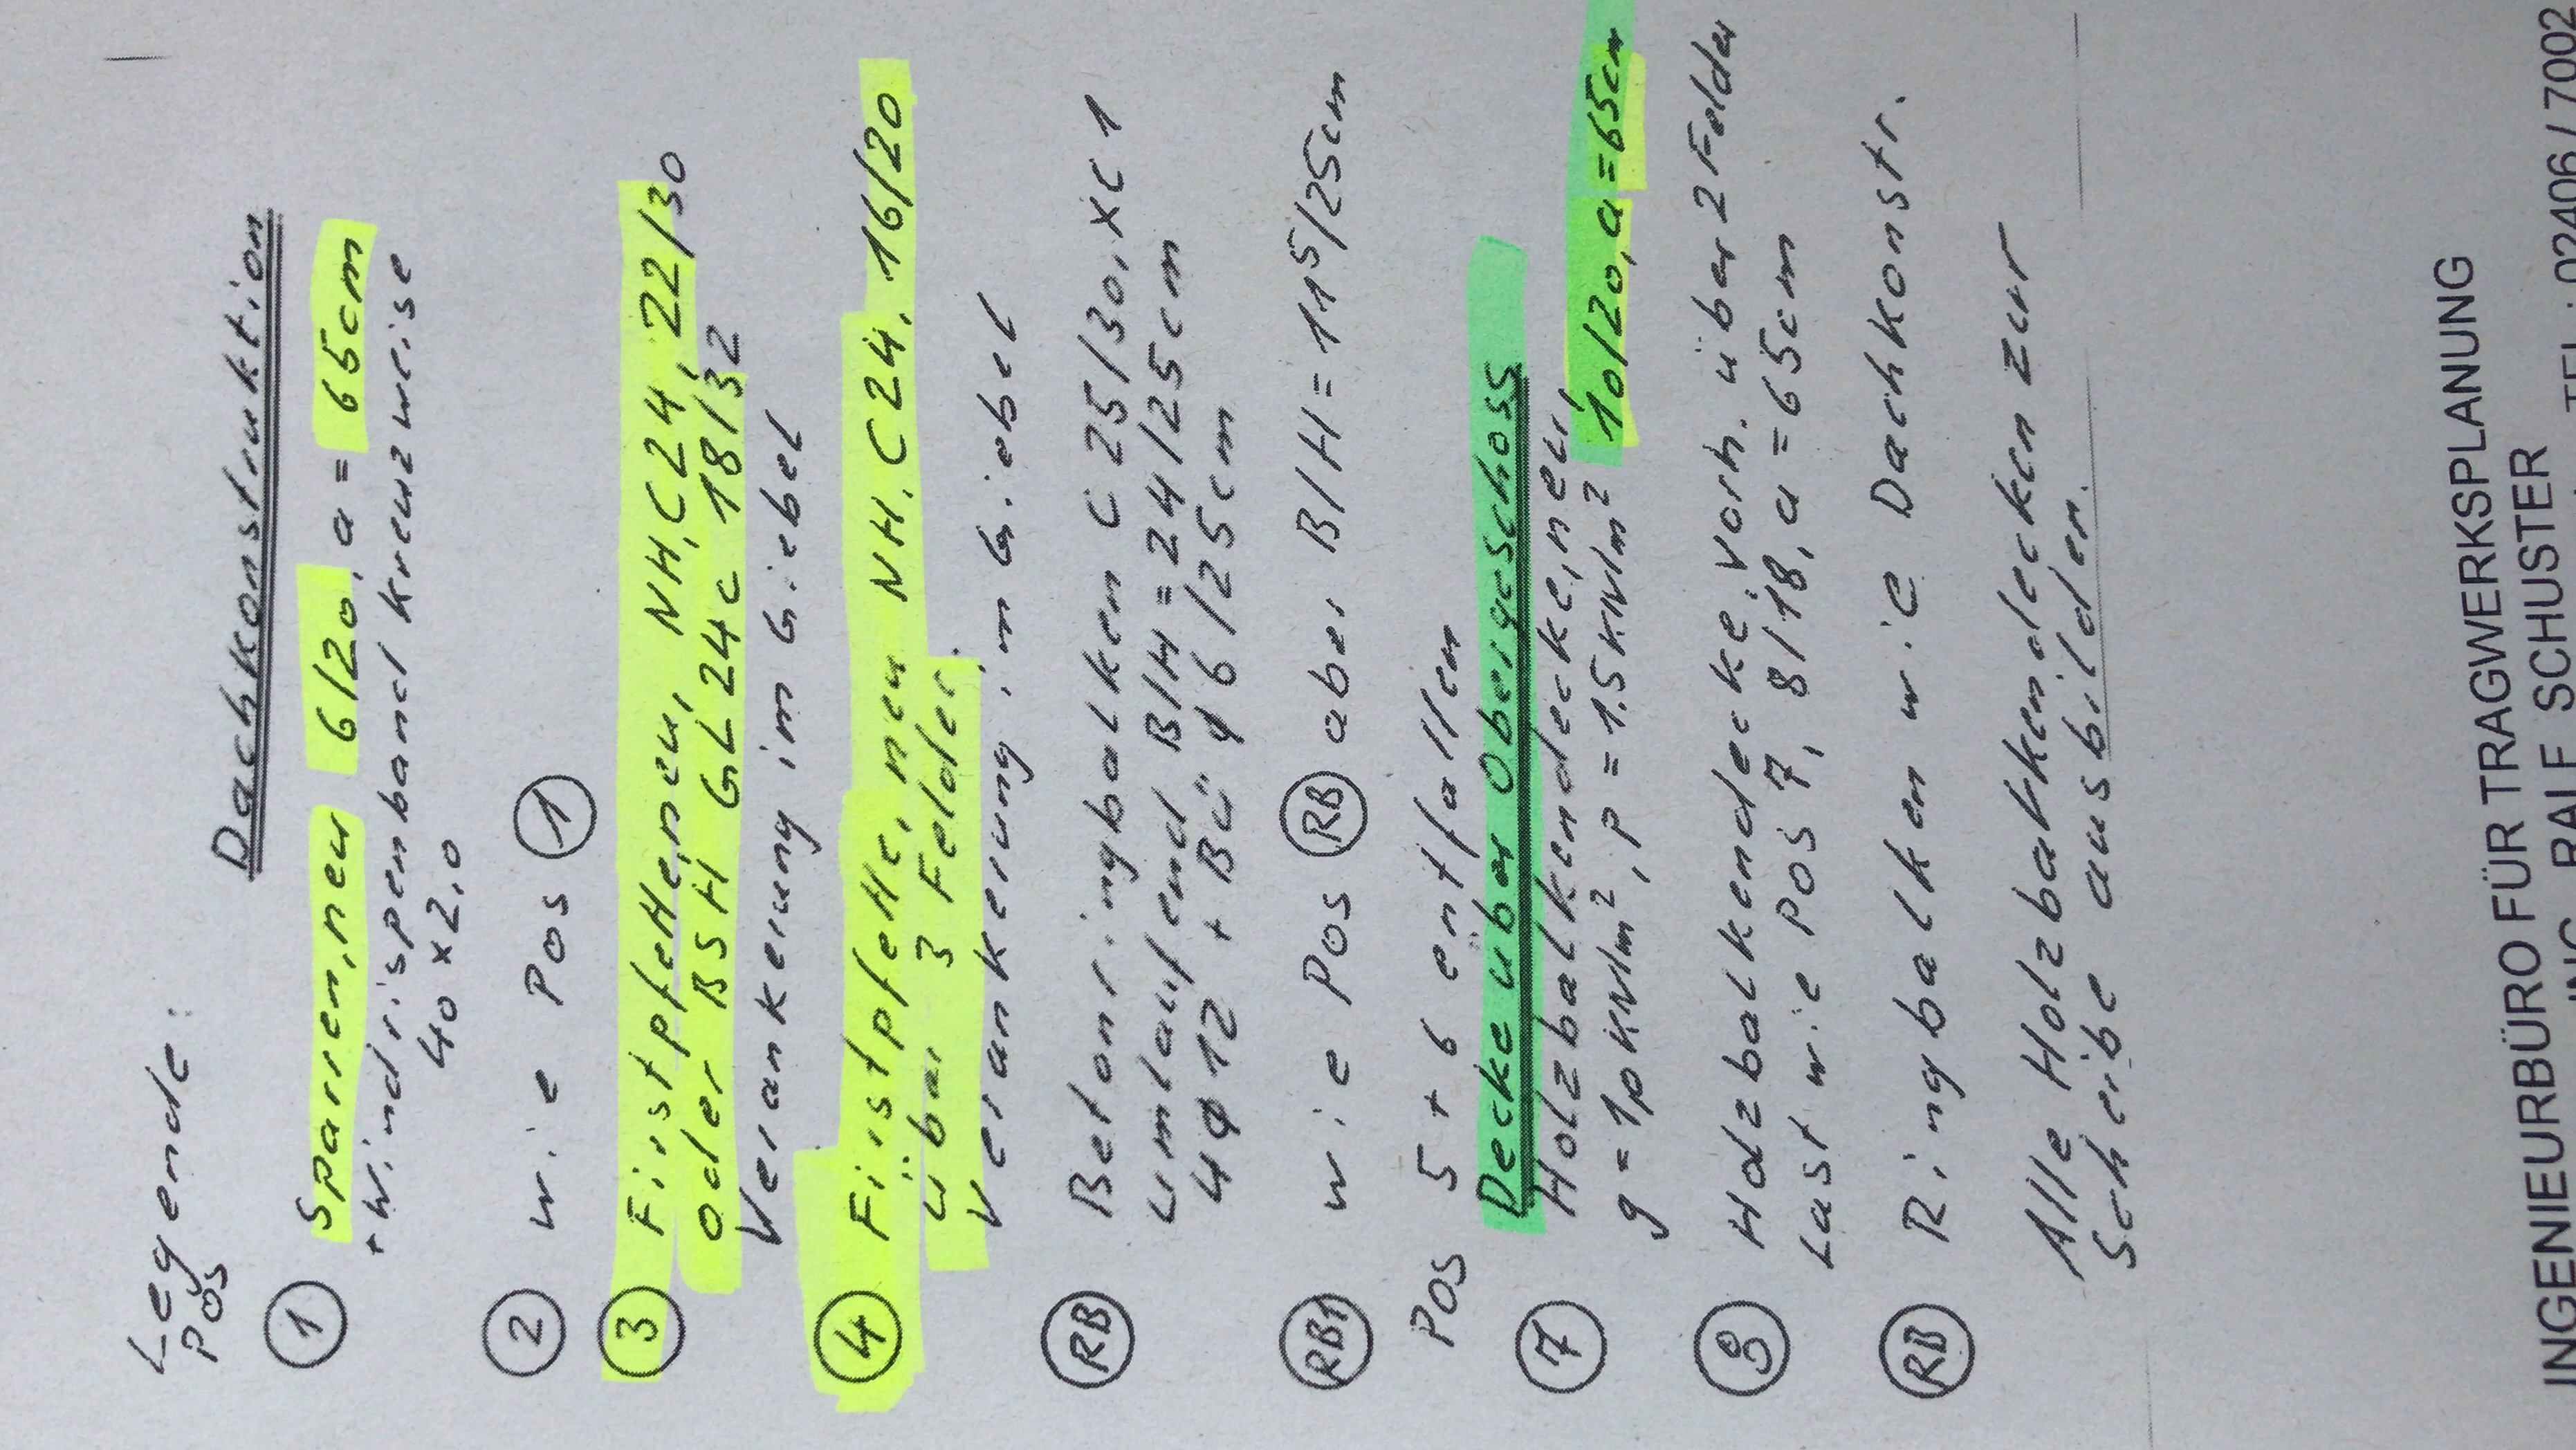 Legende:
Pos
Dachkonstruktion
1 Sparren, neu 6/20, a = 65cm
+ Windrispenband kreuzweise
40 x 2,0
2 wie Pos 1
3 Firstpfette, neu, NH, C24, 22/30
oder BSH GL24c 18/32
Verankerung im Giebel
4 Firstpfette, neu NH. C24, 16/20
über 3 Felder.
Verankerung im Giebel
RB Betonringbalken C 25/30, XC1
umlaufend B/H = 24/25cm
4ϕ12 + Bü ϕ6/25cm
RB1 wie Pos RB aber B/H = 11⁵/25cm
Pos 5 + 6 entfallen
Decke über Obergeschoss
7 Holzbalkendecke, neu,
g = 1,0 KN/m², p = 1.5 KN/m² 10/20, a = 65cm
8 Holzbalkendecke, vorh. über 2 Felder
Last wie Pos 7, 8/18, a = 65cm
RB Ringbalken wie Dachkonstr.
Alle Holzbalkendecken zur
Scheibe ausbilden.
INGENIEURBÜRO FÜR TRAGWERKSPLANUNG
RALF SCHUSTER
TEL.: 02406 / 7002